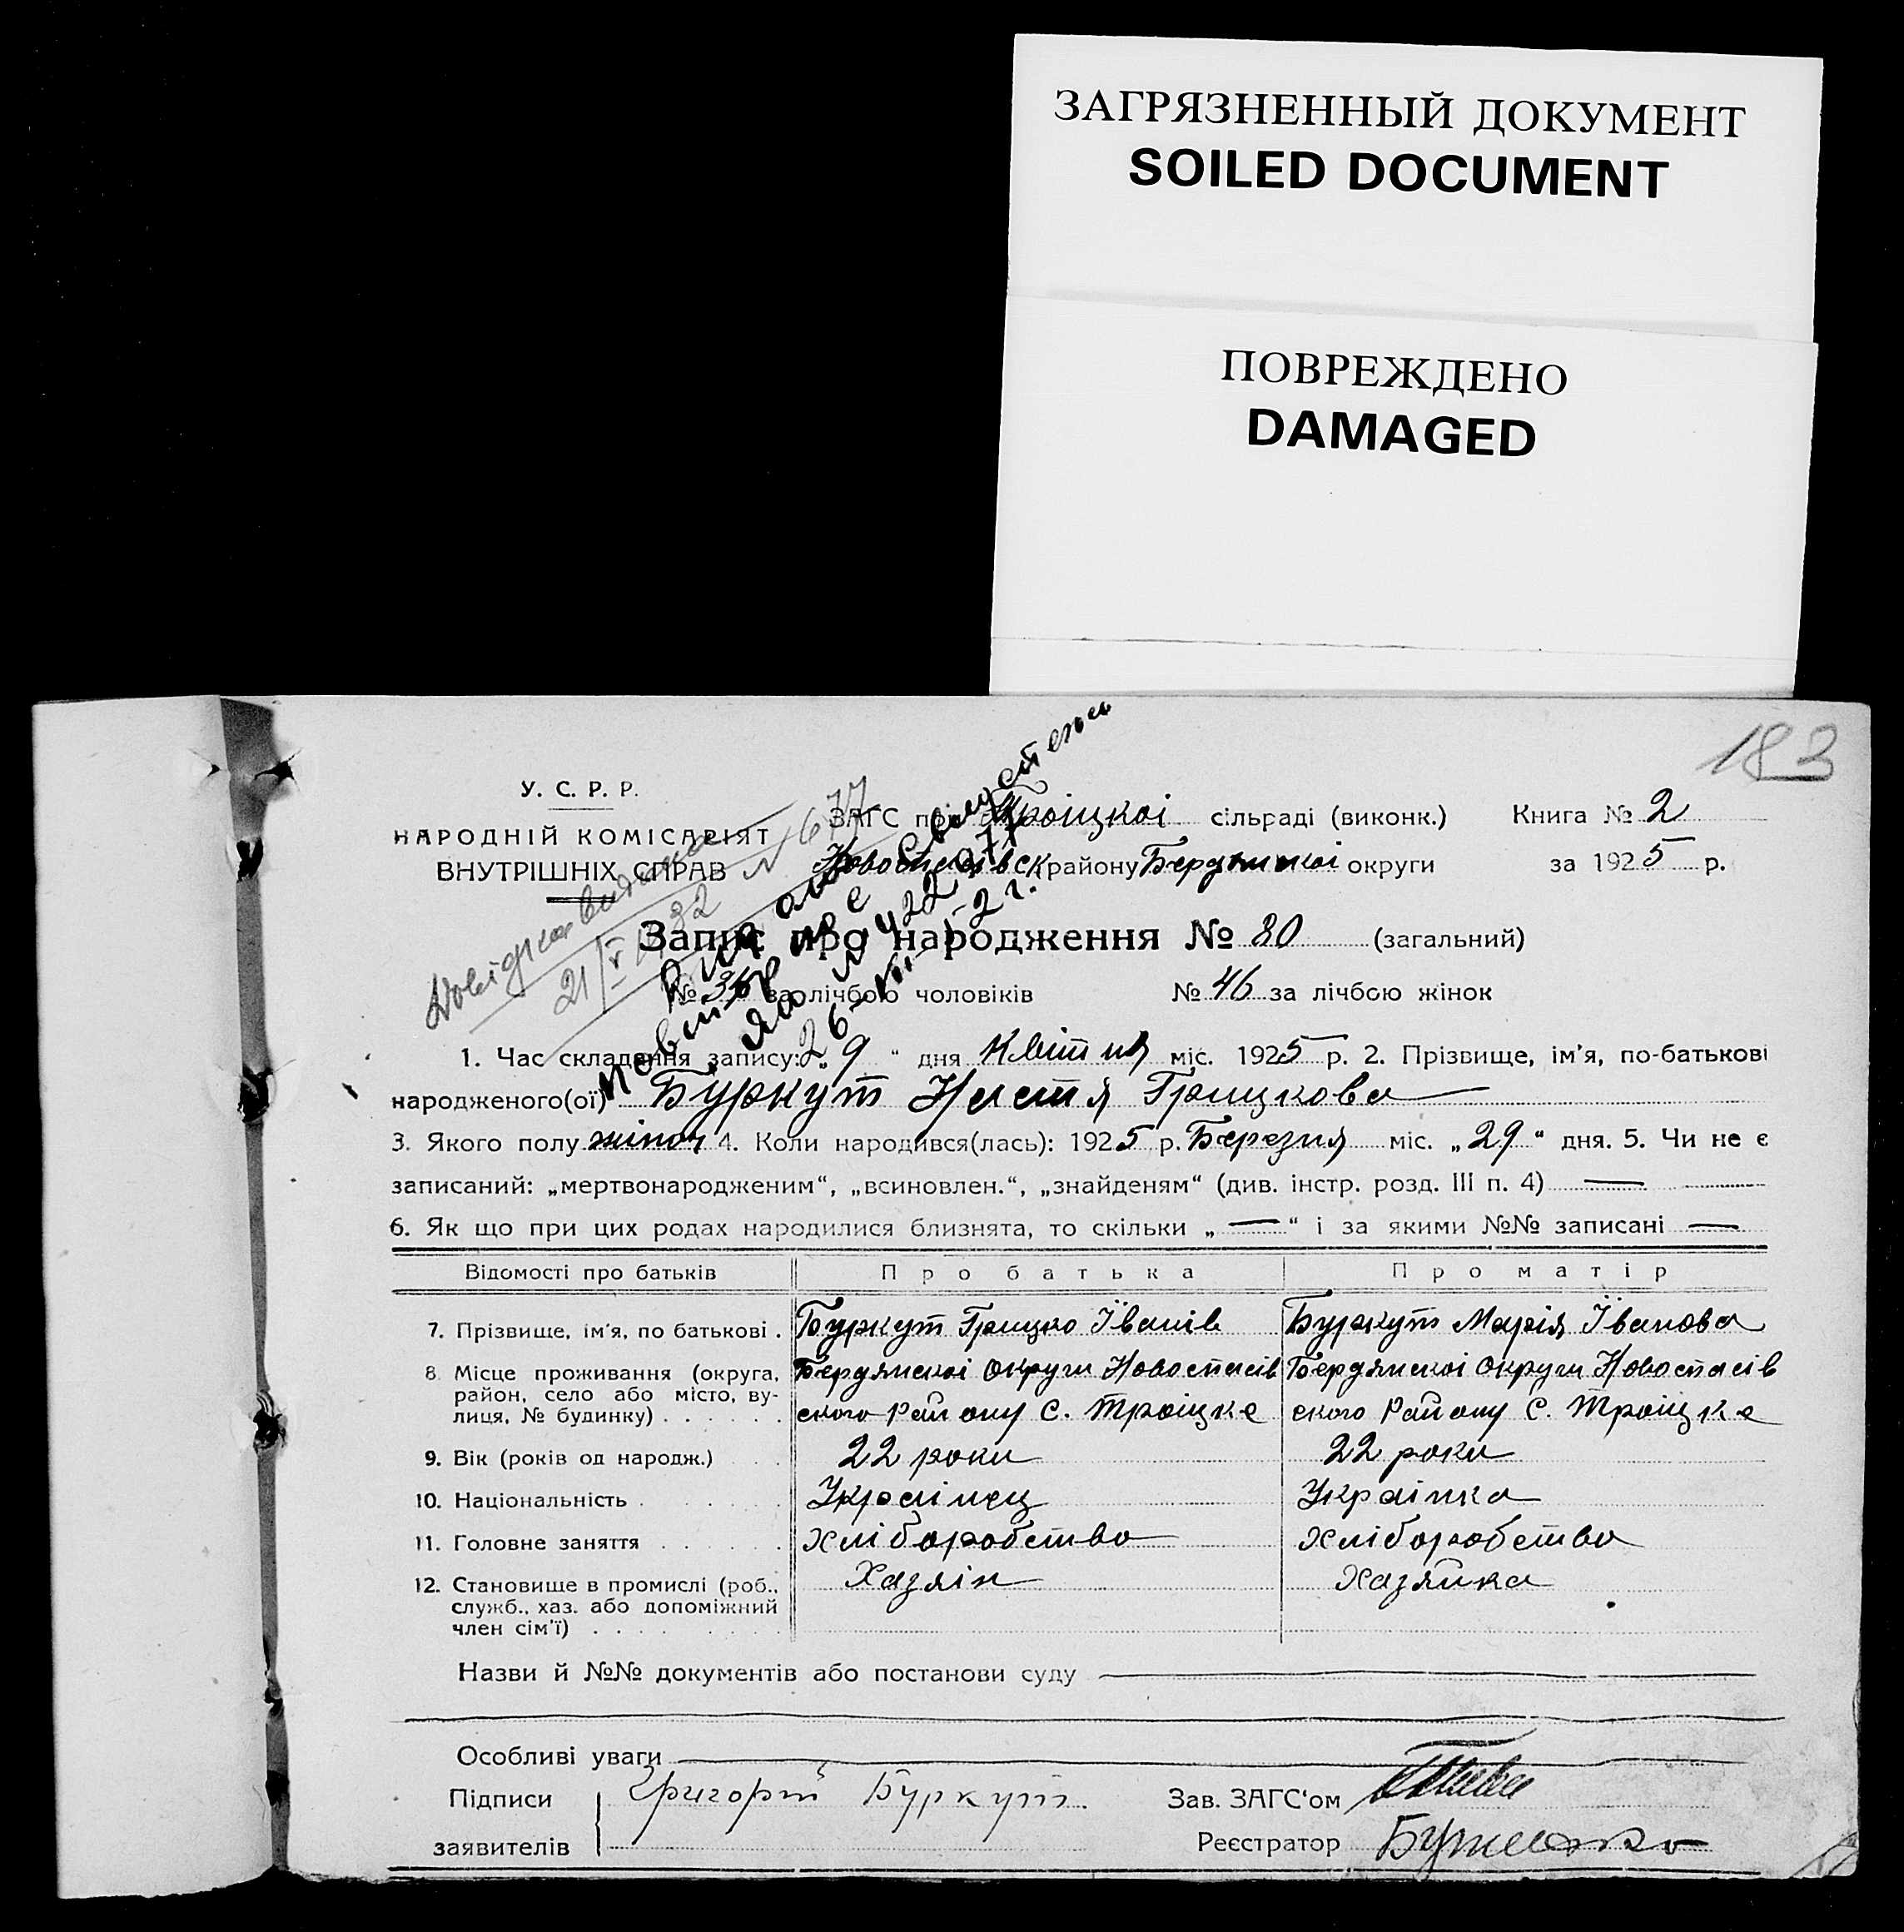 ЗАГРЯЗНЕННЫЙ ДОКУМЕНТ
SOILED DOCUMENT
ПОВРЕЖДЕНО
DAMAGED
183
У. С. Р. Р.
НАРОДНІЙ КОМІСАРІЯТ
ВНУТРІШНІХ СПРАВ
ЗАГС при Троіцкоі сільраді (виконк.) Книга № 2
Новоспасівск району Бердянскоі округи за 1925 р.
Довідка видана
21/V 1932 N 677
Запис про народження № 80 (загальний)
№ за лічбою чоловіків № 46 за лічбою жінок
1. Час складення запису: „9“ дня Квітня міс. 1925 р. 2. Прізвище, ім'я, по-батькові
народженого(ої) Буркут Настя Грицкова
3. Якого полу жіноч 4. Коли народився(лась): 1925 р. Березня міс. „29“ дня. 5. Чи не є
записаний: „мертвонародженим“, „всиновлен.“, „знайденям“ (див. інстр. розд. III п. 4) —
6. Як що при цих родах народилися близнята, то скільки „—“ і за якими №№ записані —
Відомості про батьків Про батька Про матір
7. Прізвище, ім'я, по батькові . Буркут Грицко Іванів Буркут Марія Іванова
8 Місце проживання (округа, район, село або місто, вулиця, № будинку) . . . . . . Бердянскоі Округи Новоспасів Бердянскоі Округи Новоспасів
ского Району С. Троіцке ского Району С. Троіцке
9. Вік (років од народж.) . . . 22 роки 22 роки
10. Національність . . . . . Украінец Украінка
11. Головне заняття . . . . . . Хліборобство Хліборобство
12. Становище в промислі (роб., служб., хаз. або допоміжний член сім'ї) . . . . . . . . Хазяін Хазяйка
Назви й №№ документів або постанови суду
Особливі уваги
Підписи Григорій Буркут Зав. ЗАГС'ом
заявителів Реєстратор